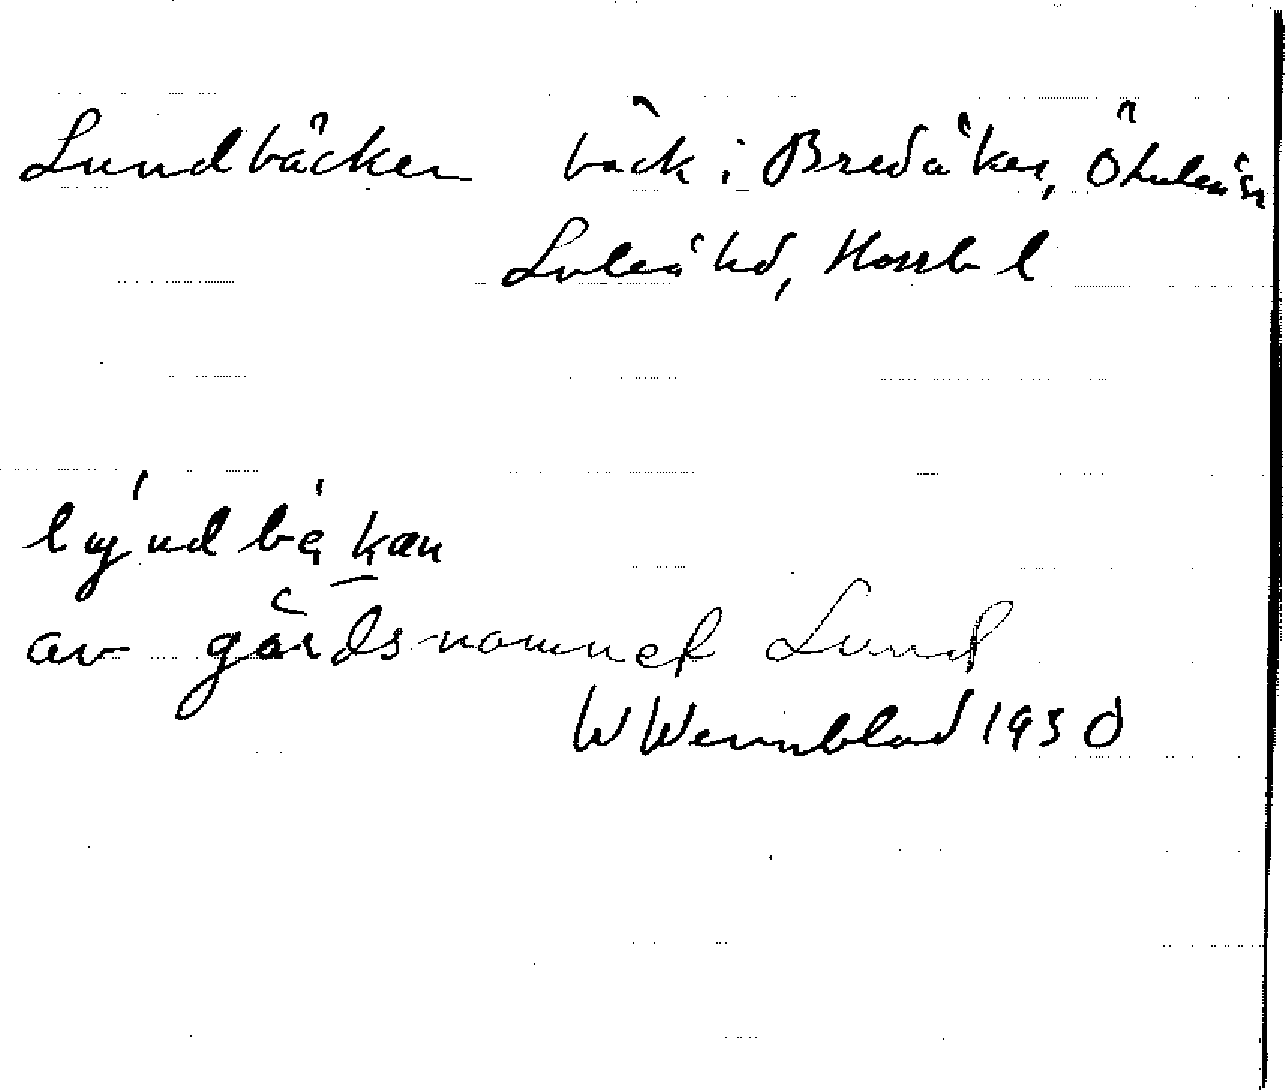 Lundbäcken bäck i Bredåker, Öluleå sn
Luleå hd, Norrb l
av gårdsnamnet Lund
W Wennblad 1930